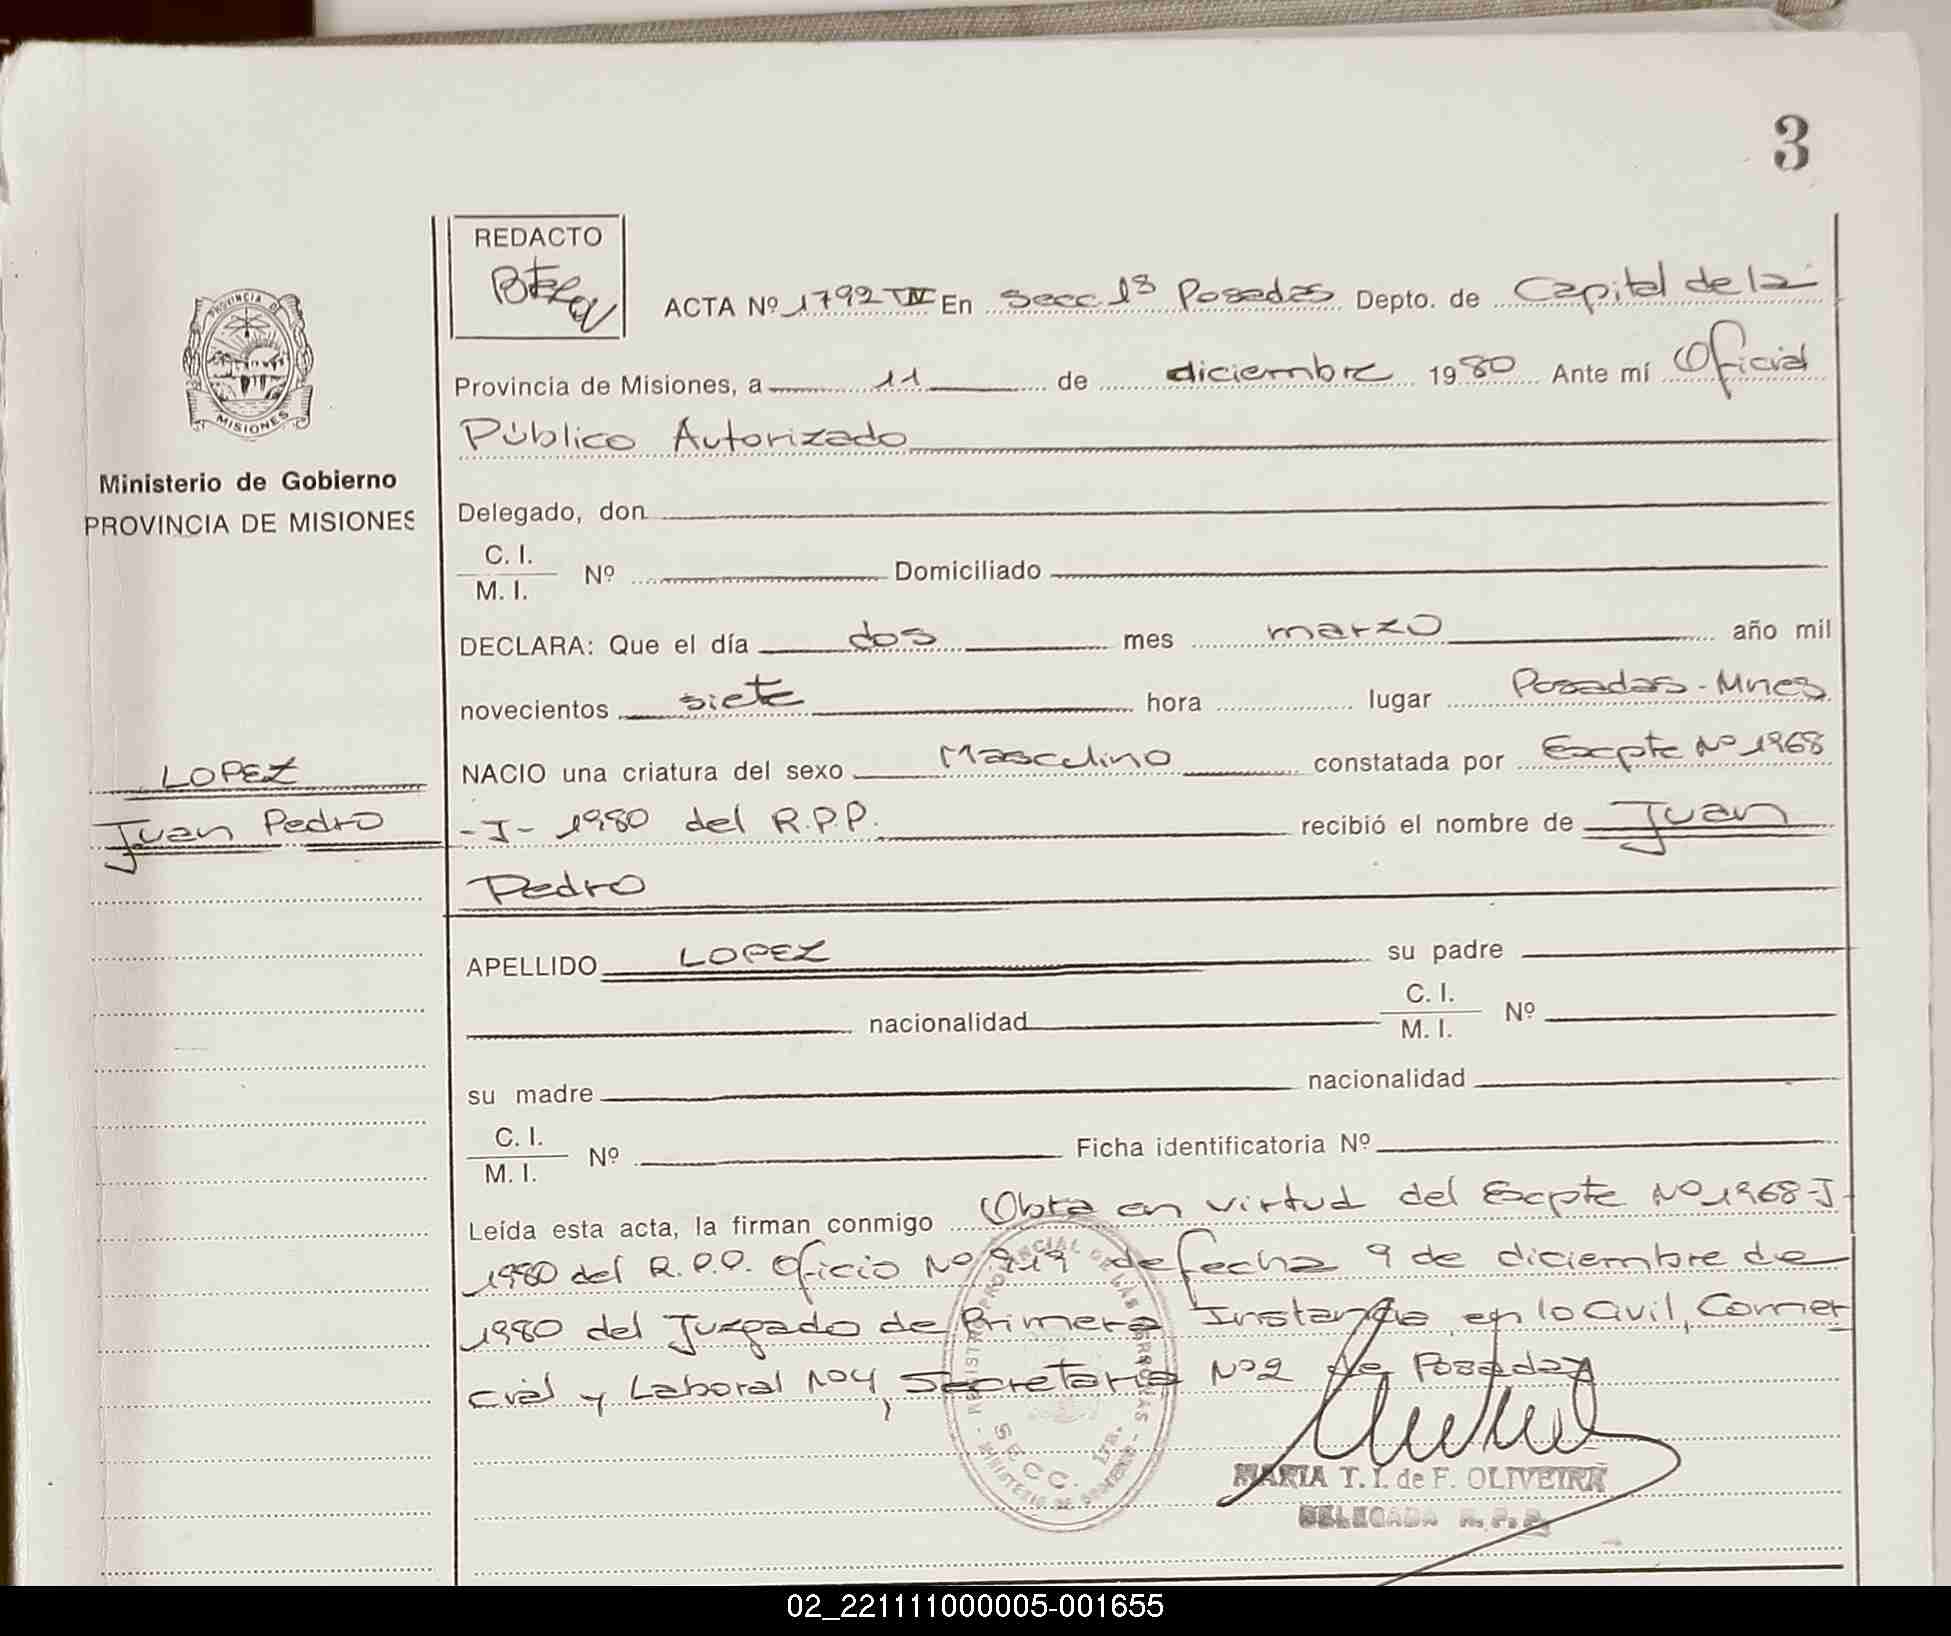 3
REDACTO
ACTA Nº 1792 TIV En Secc. 1ª Posadas Depto. de Capital de la
Provincia de Misiones, a 11 de diciembre 1980 Ante mí Oficial
Público Autorizado
PROVINCIA DE
MISIONES
Ministerio de Gobierno
PROVINCIA DE MISIONES
Delegado, don
C. I.
M. I. Nº Domiciliado
DECLARA: Que el día dos mes marzo año mil
novecientos siete hora lugar Posadas - Mnes
NACIO una criatura del sexo Masculino constatada por Excpte Nº 1968
- J - 1980 del R.P.P. recibió el nombre de Juan
Pedro
LOPEZ
Juan Pedro
APELLIDO LOPEZ su padre
nacionalidad C. I.
M. I. Nº
su madre nacionalidad
C. I.
M. I. Nº Ficha identificatoria Nº
Leída esta acta, la firman conmigo Obra en virtud del Excpte Nº 1968-J-
1980 del R.P.P. Oficio Nº de fecha 9 de diciembre de
1980 del Juzgado de Primera Instancia en lo Civil, Comer
cial y Laboral Nº 4, Secretaria Nº 2 de Posadas
SECC. 1ra.
MARIA T. I. de F. OLIVEIRA
DELEGADA R. P. P.
02_221111000005-001655